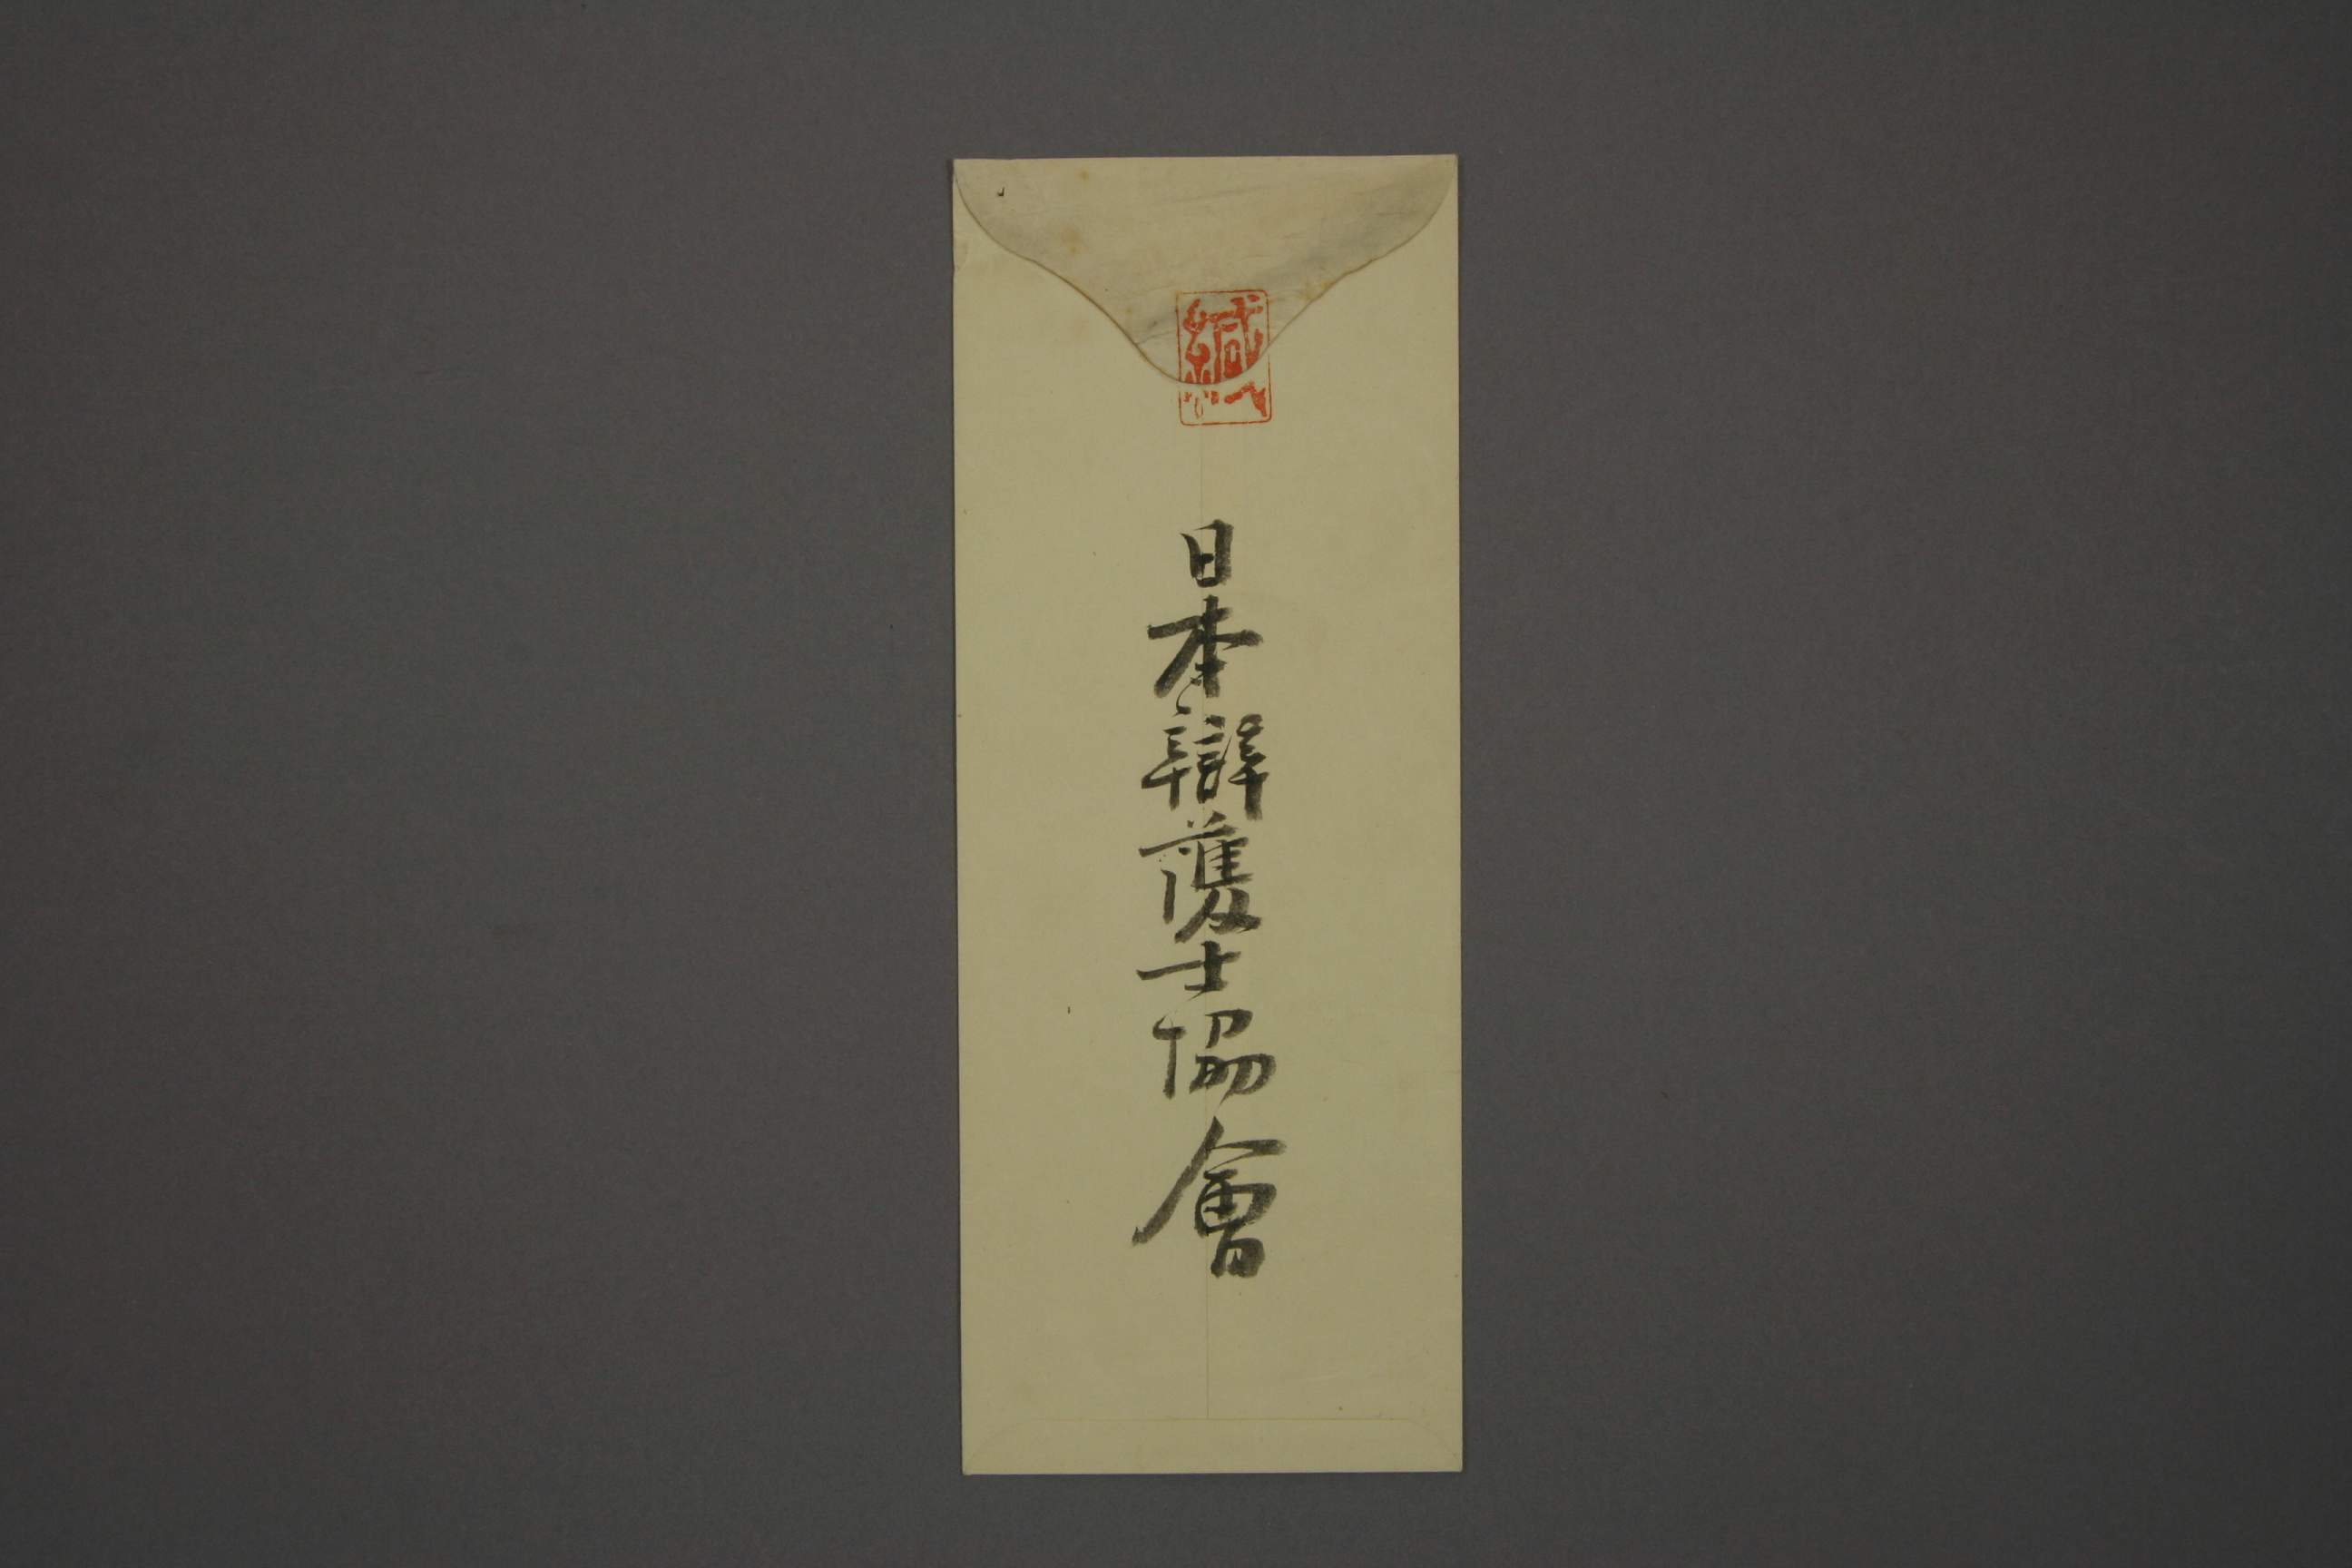 緘
日本辯護士協會